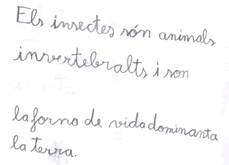 Els insectes són animals
invertebralts i son
la forno de vida dominanta
la terra.